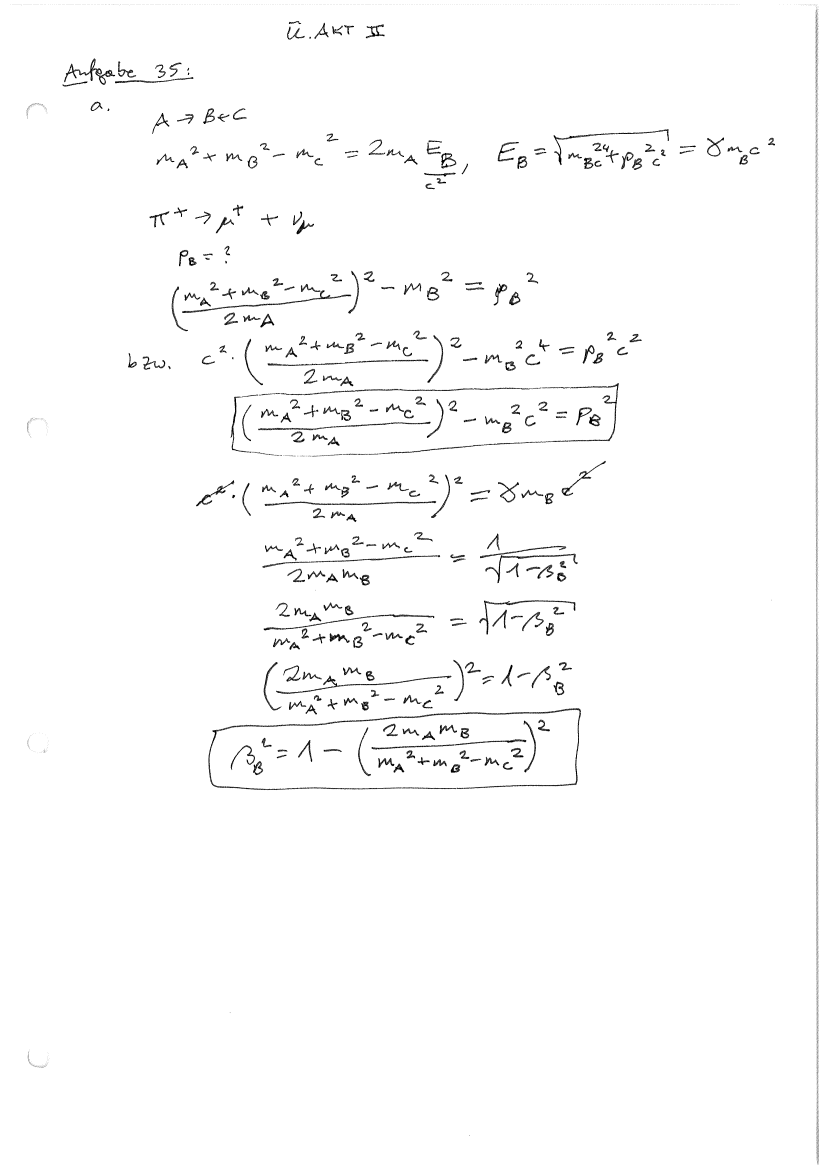 Ü. AKT II
Aufgabe 35:
a.
A → B+C
m_A² + m_B² - m_C² = 2m_A E_B/c², E_B = √(m_B²c⁴ + p_B²c²) = γm_Bc²
π⁺ → μ⁺ + ν_μ
p_B = ?
((m_A² + m_B² - m_C²)/(2m_A))² - m_B² = p_B²
bzw. c²·((m_A² + m_B² - m_C²)/(2m_A))² - m_B²c⁴ = p_B²c²
((m_A² + m_B² - m_C²)/(2m_A))² - m_B²c² = p_B²
c²·((m_A² + m_B² - m_C²)/(2m_A))² = γm_B c²
(m_A² + m_B² - m_C²)/(2m_Am_B) = 1/√(1-β_B²)
(2m_Am_B)/(m_A² + m_B² - m_C²) = √(1-β_B²)
((2m_Am_B)/(m_A² + m_B² - m_C²))² = 1-β_B²
β_B² = 1 - ((2m_Am_B)/(m_A² + m_B² - m_C²))²